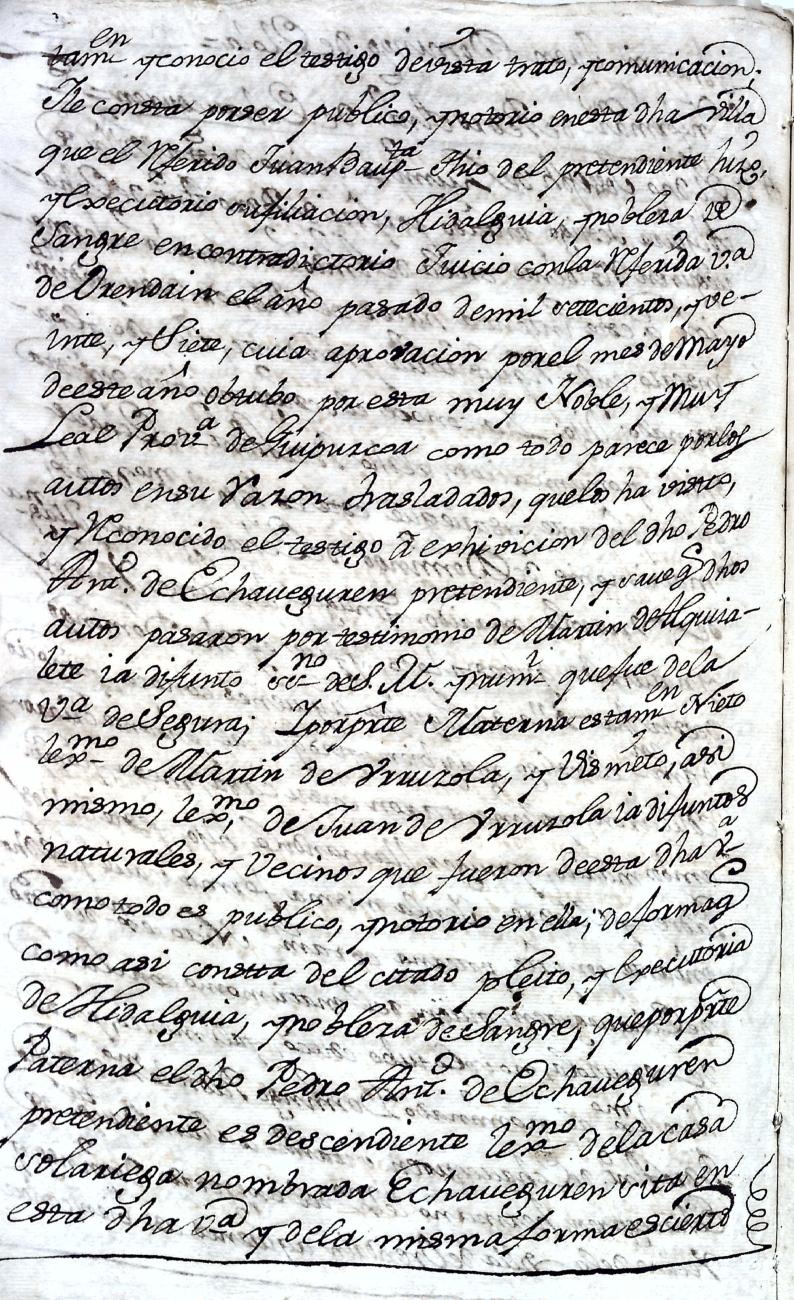 tamen y conocio el testigo de vista trato, y comunicacion;
Ile consta por ser publico, y notorio en esta dha villa
que el Referido Juan Bapta thio del pretendiente hizo,
y Executorio su filiacion, Hidalguia, y nobleza de
Sangre en contradictorio Juicio con la Referida va
de Orendain el año pasado de mil setecientos, y ve-
inte, y Siete, cuia aprovacion por el mes de Mayo
de este año obtubo por esta muy Noble, y Muy
Leal Prova de Guipuzcoa como todo parece por los
autos en su Razon trasladados, que los ha visto,
y Reconocido el testigo a exhivicion del dho Pedro
Anto. de Echaveguren pretendiente, y save q dhos
autos pasaron por testimonio de Martin de Alquia-
lete ia difunto ssno de S. M. y numl que fue de la
va de Segura; Y por prte Materna es tamen Nieto
lexmo de Martin de Urruzola, y Visnieto, asi
mismo, lexmo, de Juan de Urruzola ia difuntos
naturales, y Vecinos que fueron de esta dha va
como todo es publico, y notorio en ella; de forma q
como asi constta del citado pleito, y Executoria
de Hidalguia, y nobleza de Sangre, que por prte
Paterna el dho Pedro Anto. de Echaveguren
pretendiente es descendiente lexmo de la casa
solariega nombrada Echaveguren sita en
esta dha va y de la misma forma es cierto